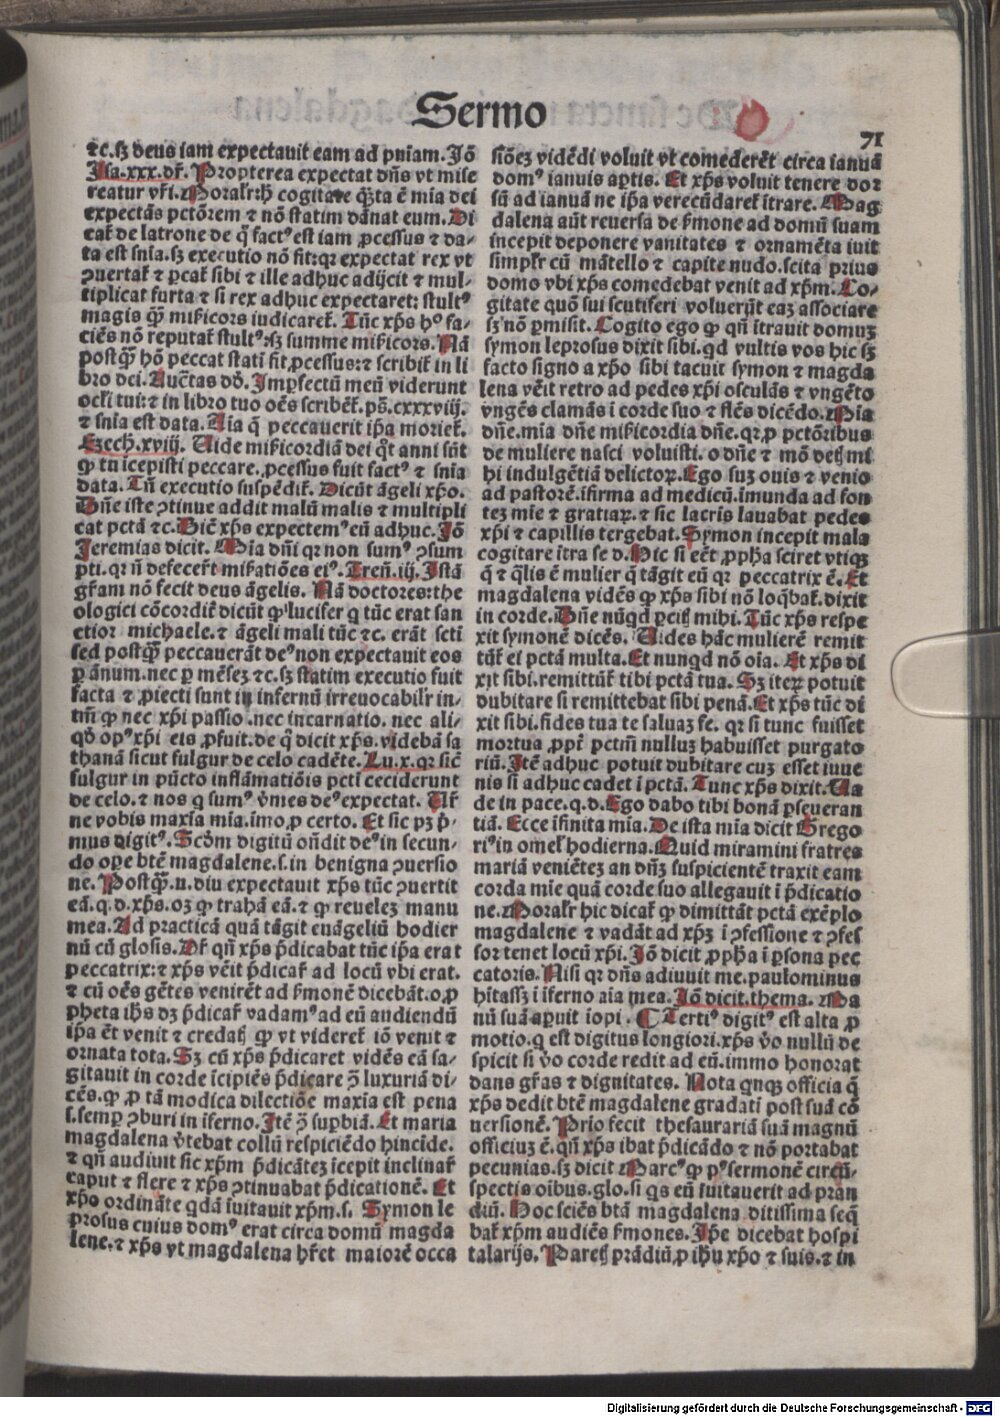 Sermo
71
⁊c. sʒ deus iam expectauit eam ad pn̄iam. Iō
Isa.xxx. dr̄. Propterea expectat dn̄s vt mise
reatur vr̄i. Moralr̄: hic cogitate q̄ꝫta ē mia dei
expectās pctōrem ⁊ nō statim dānat eum. Di
cat̄ de latrone de q̄ fact⁹ est iam ꝓcessus ⁊ da-
ta est snīa. sʒ executio nō fit: qꝛ expectat rex vt
ↄuertat̄ ⁊ ꝑcat̄ sibi ⁊ ille adhuc adijcit ⁊ mul-
tiplicat furta ⁊ si rex adhuc expectaret: stult⁹
magis q̄ꝫ mīsicors iudicaret̄. Tūc xp̄s hº fa-
ciēs nō reputat̄ stult⁹: sʒ summe mīsicors. Nā
postq̄ꝫ hō peccat stati fit ꝓcessus: ⁊ scribit̄ in li
bro dei. Auctas dꝰ. Imꝑfectū meū viderunt
oclī tui: ⁊ in libro tuo oēs scribēt̄. pō. cxxxviij.
⁊ snīa est data. Aīa q̄ peccauerit ip̄a moriet̄.
Ezech. xviij. Vide mīsicordiā dei qͦt anni sūt
ꝙ tu icepisti peccare. ꝓcessus fuit fact⁹ ⁊ snīa
data. Tn̄ executio suspēdit̄. Dicūt āgeli xp̄o.
Dn̄e iste ↄtinue addit malū malis ⁊ multipli
cat pctā ⁊c. Dic̄ xp̄s expectem⁹ eū adhuc. Iō
Jeremias dicit. Mia dn̄i qꝛ non sum⁹ ↄsum
pti. qꝛ n̄ defecer̄t mīsatiōes ei⁹. Tren̄. iij. Istā
gr̄am nō fecit deus āgelis. Nā doctores: the
ologici cōcordit̄ dicūt ꝙ lucifer q̄ tūc erat san
ctior michaele. ⁊ āgeli mali tūc ⁊c. erāt sctī
sed postq̄ꝫ peccauerāt de⁹ non expectauit eos
ꝑ ānum. nec ꝑ mēseʒ ⁊c. sʒ statim executio fuit
facta ⁊ ꝓiecti sunt in infernū irreuocabilr̄ in-
tm̄ ꝙ nec xp̄i passio. nec incarnatio. nec ali-
qd̄ op⁹ xp̄i eis ꝓfuit. de q̄ dicit xp̄s. videbā sa
thanā sicut fulgur de celo cadēte. Lu. x. qꝛ sic̄
fulgur in pūcto inflāmatiōis pctī ceciderunt
de celo. ⁊ nos q sum⁹ v̄mes de⁹ expectat. Vr̄
ne vobis maxīa mia. imo ꝓ certo. Et sic pʒ p̄-
mus digit⁹. Scd̄m digitū on̄dit de⁹ in secun-
do oꝑe btē magdalene. s. in benigna ↄuersio
ne. Postq̄ꝫ. n. diu expectauit xp̄s tūc ↄuertit
eā. q. d. xp̄s. oʒ ꝙ trahā eā. ⁊ ꝙ reueleʒ manu
mea. Ad practicā quā tāgit euāgeliū hodier
nū cū glosis. Dr̄ qn̄ xp̄s p̄dicabat tūc ip̄a erat
peccatrix: ⁊ xp̄s vēit p̄dicar̄ ad locū vbi erat.
⁊ cū oēs gētes venirēt ad s̄monē dicebāt. o ꝓ
pheta ihs dʒ p̄dicar̄ vadam⁹ ad eū audiendū
ip̄a ēt venit ⁊ credatꝭ ꝙ vt videret̄ iō venit ⁊
ornata tota. Sʒ cū xp̄s p̄dicaret vidēs eā sa-
gitauit in corde īcipiēs p̄dicare ↄ̄ luxuriā di-
cēs. ꝙ ꝓ tā modica dilectiōe maxīa est pena
s. semꝑ ↄburi in iferno. Itē ↄ̄ suꝑbiā. Et maria
magdalena v̄tebat collū respiciēdo hincīde.
⁊ qn̄ audiuit sic xp̄m p̄dicāteʒ icepit inclinar̄
caput ⁊ flere ⁊ xp̄s ↄtinuabat p̄dicationē. Et
xp̄s ordināte qdā iuitauit xp̄m. s. Symon le
prosus cuius dom⁹ erat circa domū magda
lene. ⁊ xp̄s vt magdalena hr̄et maiorē occa
siōeʒ vidēdi voluit vt comederēt circa ianuā
dom⁹ ianuis aꝑtis. Et xp̄s voluit tenere dor
sū ad ianuā ne ip̄a verecūdaret̄ itrare. Mag
dalena aūt reuersa de s̄mone ad domū suam
incepit deponere vanitates ⁊ ornamēta iuit
simplr̄ cū mātello ⁊ capite nudo. scita prius
domo vbi xp̄s comedebat venit ad xp̄m. Co-
gitate quō sui scutiferi voluerūt eaʒ associare
sʒ nō ꝑmisit. Cogito ego ꝙ qn̄ itrauit domuʒ
symon leprosus dixit sibi. qd vultis vos hic sʒ
facto signo a xp̄o sibi tacuit symon ⁊ magda
lena vēit retro ad pedes xp̄i osculās ⁊ vngēto
vngēs clamās ī corde suo ⁊ flēs dicēdo. Mia
dn̄e. mia dn̄e mīsicordia dn̄e. qꝛ ꝓ pctōribus
de muliere nasci voluisti. o dn̄e ⁊ mō detꝭ mi
hi indulgētiā delictoꝝ. Ego suʒ ouis ⁊ venio
ad pastorē. ifirma ad medicū. imunda ad fon
teʒ mie ⁊ gratiaꝝ. ⁊ sic lacris lauabat pedes
xp̄i ⁊ capillis tergebat. Symon incepit mala
cogitare itra se d. Hic si eēt ꝓpħa sciret vtiqꝫ
q̄ ⁊ q̄lis ē mulier q̄ tāgit eū qꝛ peccatrix ē. Et
magdalena vidēs ꝙ xp̄s sibi nō loq̄bat̄. dixit
in corde. Dn̄e nūqd ꝑcitꝭ mihi. Tūc xp̄s respe
xit symonē dicēs. Vides hāc mulierē remit
tūt̄ ei pctā multa. Et nunqd nō oīa. Et xp̄s di
xit sibi. remittūt̄ tibi pctā tua. Sʒ iteꝝ potuit
dubitare si remittebat sibi penā. Et xp̄s tūc di
xit sibi. fides tua te saluaʒ fe. qꝛ si tunc fuisset
mortua ꝓpt̄ pctm̄ nulluʒ habuisset purgato
riū. Itē adhuc potuit dubitare cuʒ esset iuue
nis si adhuc cadet ī pctā. Tunc xp̄s dixit. Va
de in pace. q. d. Ego dabo tibi bonā ꝑseueran
tiā. Ecce ifinita mia. De ista mia dicit Grego
ri⁹ in omel̄ hodierna. Quid miramini fratres
mariā veniēteʒ an dn̄ʒ suspicientē traxit eam
corda mie quā corde suo allegauit ī p̄dicatio
ne. Moralr̄ hic dicat̄ ꝙ dimittāt pctā exēplo
magdalene ⁊ vadāt ad xp̄ʒ ī ↄfessione ⁊ ↄfes
sor tenet locū xp̄i. Iō dicit ꝓpħa ī ꝑsona pec
catoris. Nisi qꝛ dn̄s adiuuit me. paulominus
hītassʒ ī iferno aīa mea. Iō dicit. thema. Ma
nū suā aꝑuit iopi. ¶ Terti⁹ digit⁹ est alta ꝓ
motio. q est digitus longiori. xp̄s v̄o nullū de
spicit si v̄o corde redit ad eū. immo honorat
dans gr̄as ⁊ dignitates. Nota qnqꝫ officia q̄
xp̄s dedit btē magdalene gradatī post suā cō
uersionē. Prīo fecit thesaurariā suā magnū
officiuʒ ē. qn̄ xp̄s ibat p̄dicādo ⁊ nō portabat
pecunias. sʒ dicit Marc⁹ ꝙ p⁹ sermonē circū-
spectis oībus. glo. si qs eū iuitauerit ad prān
diū. Hoc sciēs btā magdalena ditissima seq̄
bat̄ xp̄m audiēs s̄mones. Ip̄e dicebat hospi
talarijs. Paretꝭ prādiū ꝓ ihū xp̄o ⁊ suis. ⁊ in
Digitalisierung gefördert durch die Deutsche Forschungsgemeinschaft - DFG